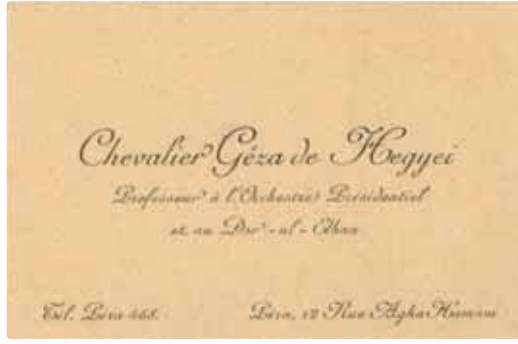 Chevalier Géza de Hegyei
Professeur à l'Orchestre Présidentiel
et au Dar-ul-Elhan
Tél. Péra 468.
Péra, 12 Rue Agha Hamam